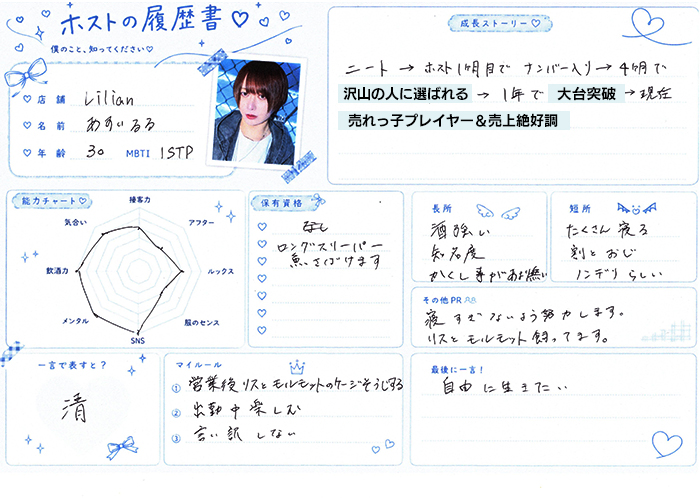 ホストの履歴書♡
僕のこと、知ってください♡
♡ 店舗 Lilian
♡ 名前 あすいるる
♡ 年齢 30 MBTI ISTP
成長ストーリー♡
ニート → ホスト1ヶ月目で ナンバー入り → 4ヶ月で
沢山の人に選ばれる → 1年で 大台突破 → 現在
売れっ子プレイヤー＆売上絶好調
能力チャート♡
接客力
アフター
ルックス
服のセンス
SNS
メンタル
飲酒力
気合い
保有資格
なし
ロングスリーパー
魚さばけます
長所
酒強い
知名度
かくし事があまり無い
短所
たくさん寝る
割とおじ
ノンデリらしい
その他PR
寝すぎないよう努力します。
リスとモルモット飼ってます。
一言で表すと？
清
マイルール
① 営業後リスとモルモットのケージそうじする
② 出勤中楽しむ
③ 言い訳しない
最後に一言！
自由に生きたい